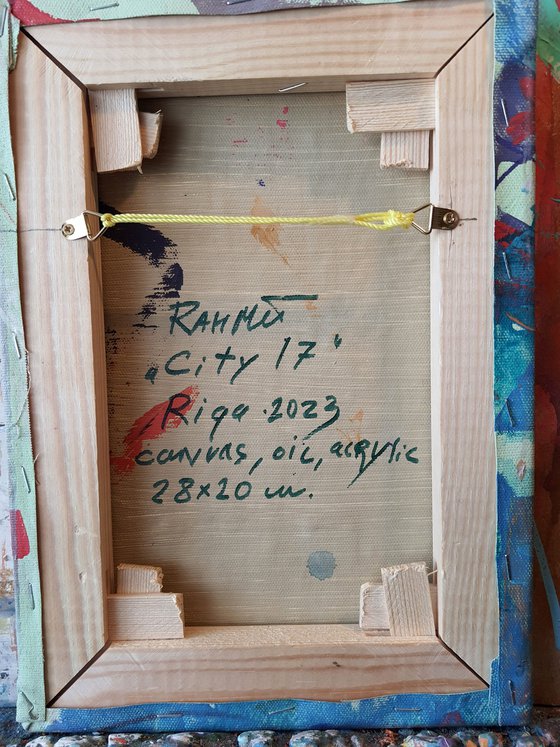 Ранмй
„City 17"
Riga . 2023
canvas, oil, acrylic
28x20 cm.